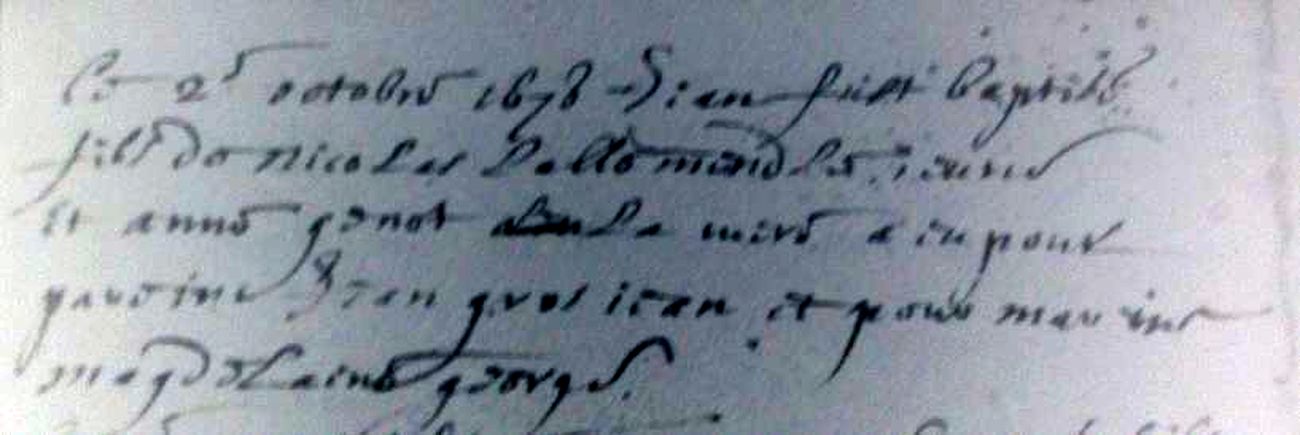 Le 2e octobre 1678 Jean fust baptisé
fils de nicolas Lallemend le jeune
Et anne genot la mere a eu pour
paroine Jean gros jean et pour maroine
magdelaine george.